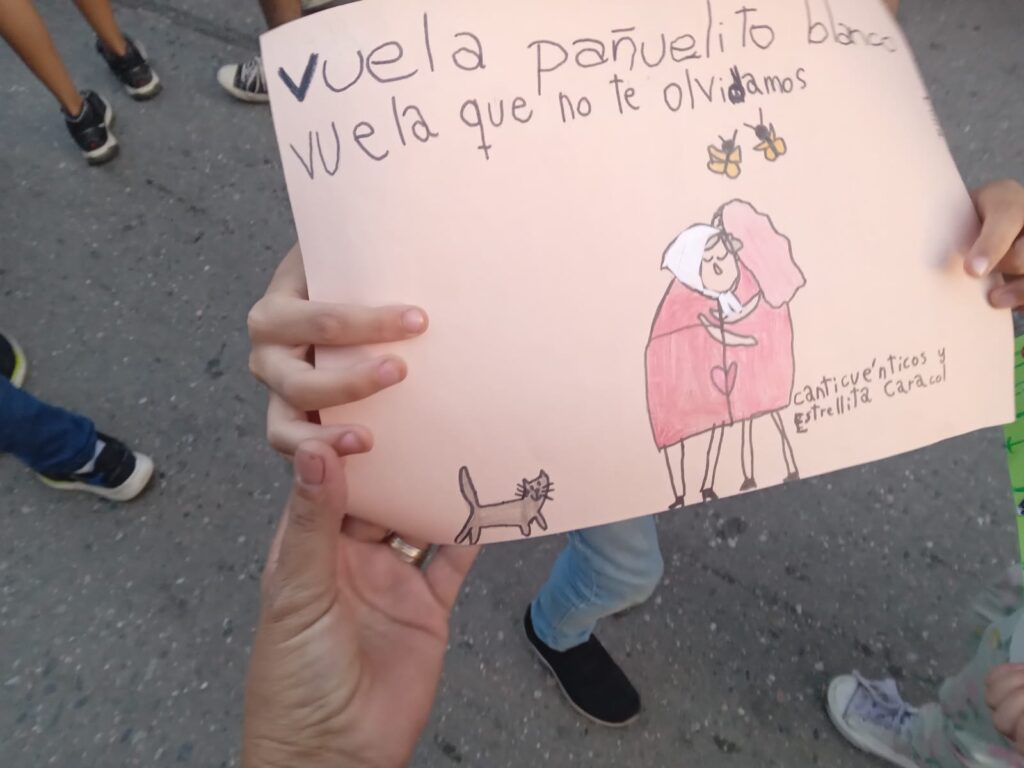 vuela pañuelito blanco
vuela que no te olvidamos
canticuénticos y
Estrellita Caracol